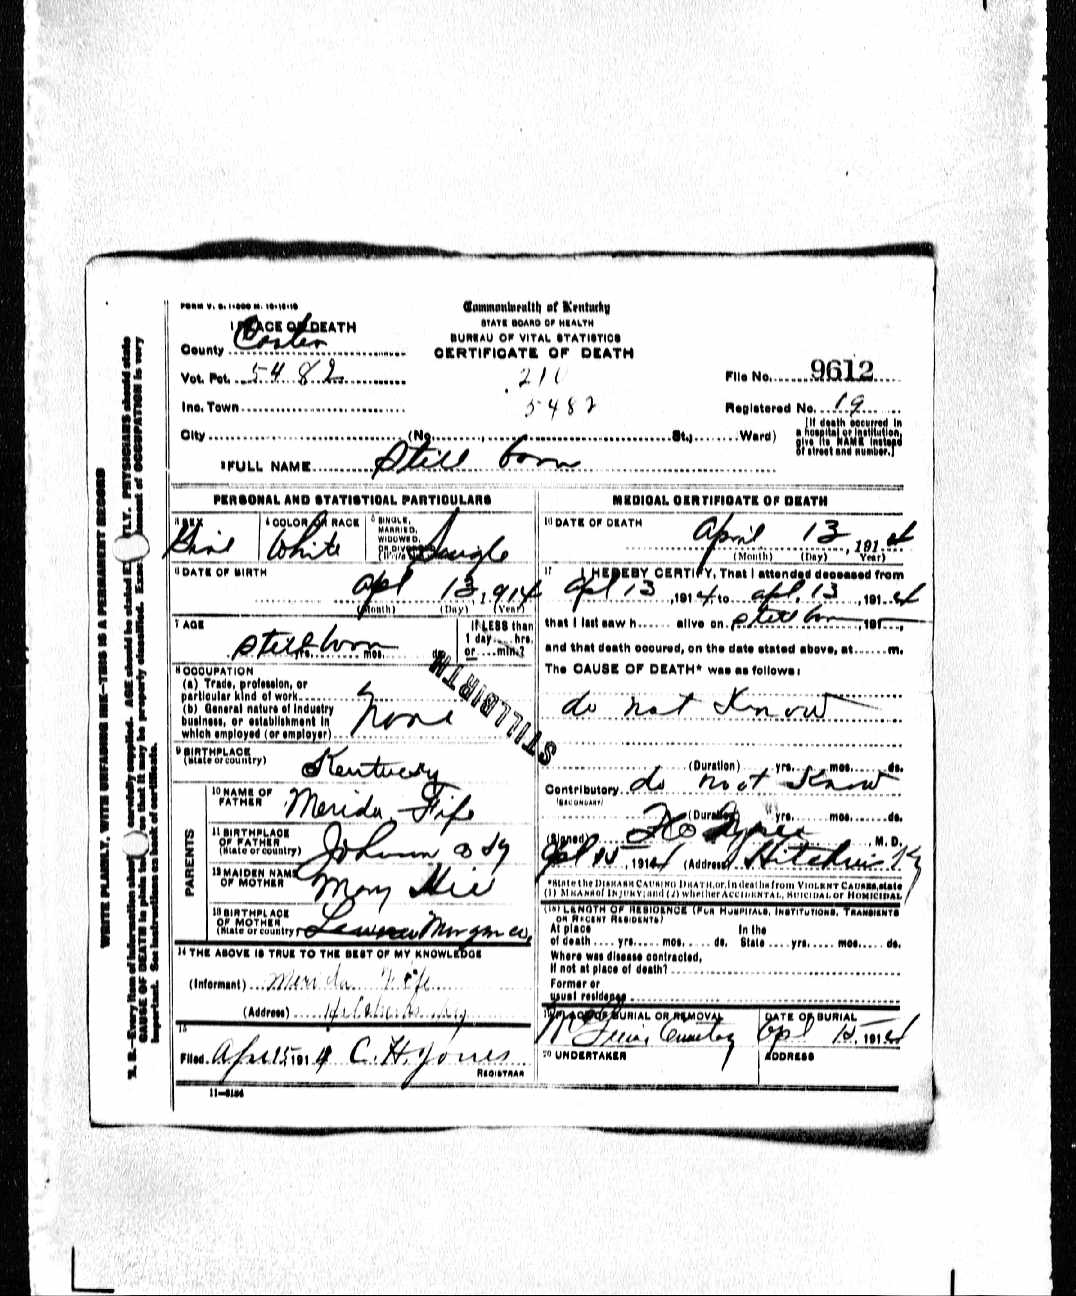 FORM V. S. 1-500 M. 10-12-10
Commonwealth of Kentucky
STATE BOARD OF HEALTH
BUREAU OF VITAL STATISTICS
CERTIFICATE OF DEATH
1 PLACE OF DEATH
County Carter
Vot. Pct. 5482
Inc. Town
City (No. St.; Ward)
210
5482
File No. 9612
Registered No. 19
[If death occurred in
a hospital or institution,
give its NAME instead
of street and number.]
2 FULL NAME Still born
PERSONAL AND STATISTICAL PARTICULARS
3 SEX Girl
4 COLOR OR RACE White
5 SINGLE,
MARRIED,
WIDOWED,
OR DIVORCED Single
6 DATE OF BIRTH
Apl 13, 914
(Month) (Day) (Year)
7 AGE
still born
yrs. mos. ds.
If LESS than
1 day hrs.
or min.?
STILLBIRTH
8 OCCUPATION
(a) Trade, profession, or
particular kind of work
(b) General nature of industry
business, or establishment in
which employed (or employer) none
9 BIRTHPLACE
(State or country) Kentucky
PARENTS
10 NAME OF
FATHER Merida Fife
11 BIRTHPLACE
OF FATHER
(State or country) Johnson Co Ky
12 MAIDEN NAME
OF MOTHER Mary
13 BIRTHPLACE
OF MOTHER
(State or country) Morgan Co,
14 THE ABOVE IS TRUE TO THE BEST OF MY KNOWLEDGE
(Informant) Merida Fife
(Address) Hitchins Ky
15
Filed Apr 15 1914 C. H. Jones
REGISTRAR
11-3184
MEDICAL CERTIFICATE OF DEATH
16 DATE OF DEATH
April 13, 1914
(Month) (Day) (Year)
17 I HEREBY CERTIFY, That I attended deceased from
Apl 13, 1914, to Apl. 13, 1914
that I last saw h alive on still born, 191
and that death occured, on the date stated above, at m.
The CAUSE OF DEATH* was as follows:
do not Know
(Duration) yrs. mos. ds.
Contributory do not Know
(SECONDARY)
(Duration) yrs. mos. ds.
(Signed) M. D.
Apl 15, 1914 (Address) Hitchins Ky
*State the DISEASE CAUSING DEATH, or, in deaths from VIOLENT CAUSES, state
(1) MEANS OF INJURY; and (2) whether ACCIDENTAL, SUICIDAL or HOMICIDAL
(18) LENGTH OF RESIDENCE (FOR HOSPITALS, INSTITUTIONS, TRANSIENTS
OR RECENT RESIDENTS)
At place In the
of death yrs. mos. ds. State yrs. mos. ds.
Where was disease contracted,
If not at place of death?
Former or
usual residence
19 PLACE OF BURIAL OR REMOVAL
Cemetery
DATE OF BURIAL
Apl 15, 1914
20 UNDERTAKER
ADDRESS
WRITE PLAINLY, WITH UNFADING INK—THIS IS A PERMANENT RECORD
N. B.—Every item of information should be carefully supplied. AGE should be stated EXACTLY. PHYSICIANS should state
CAUSE OF DEATH in plain terms, so that it may be properly classified. Exact statement of OCCUPATION is very
important. See instructions on back of certificate.